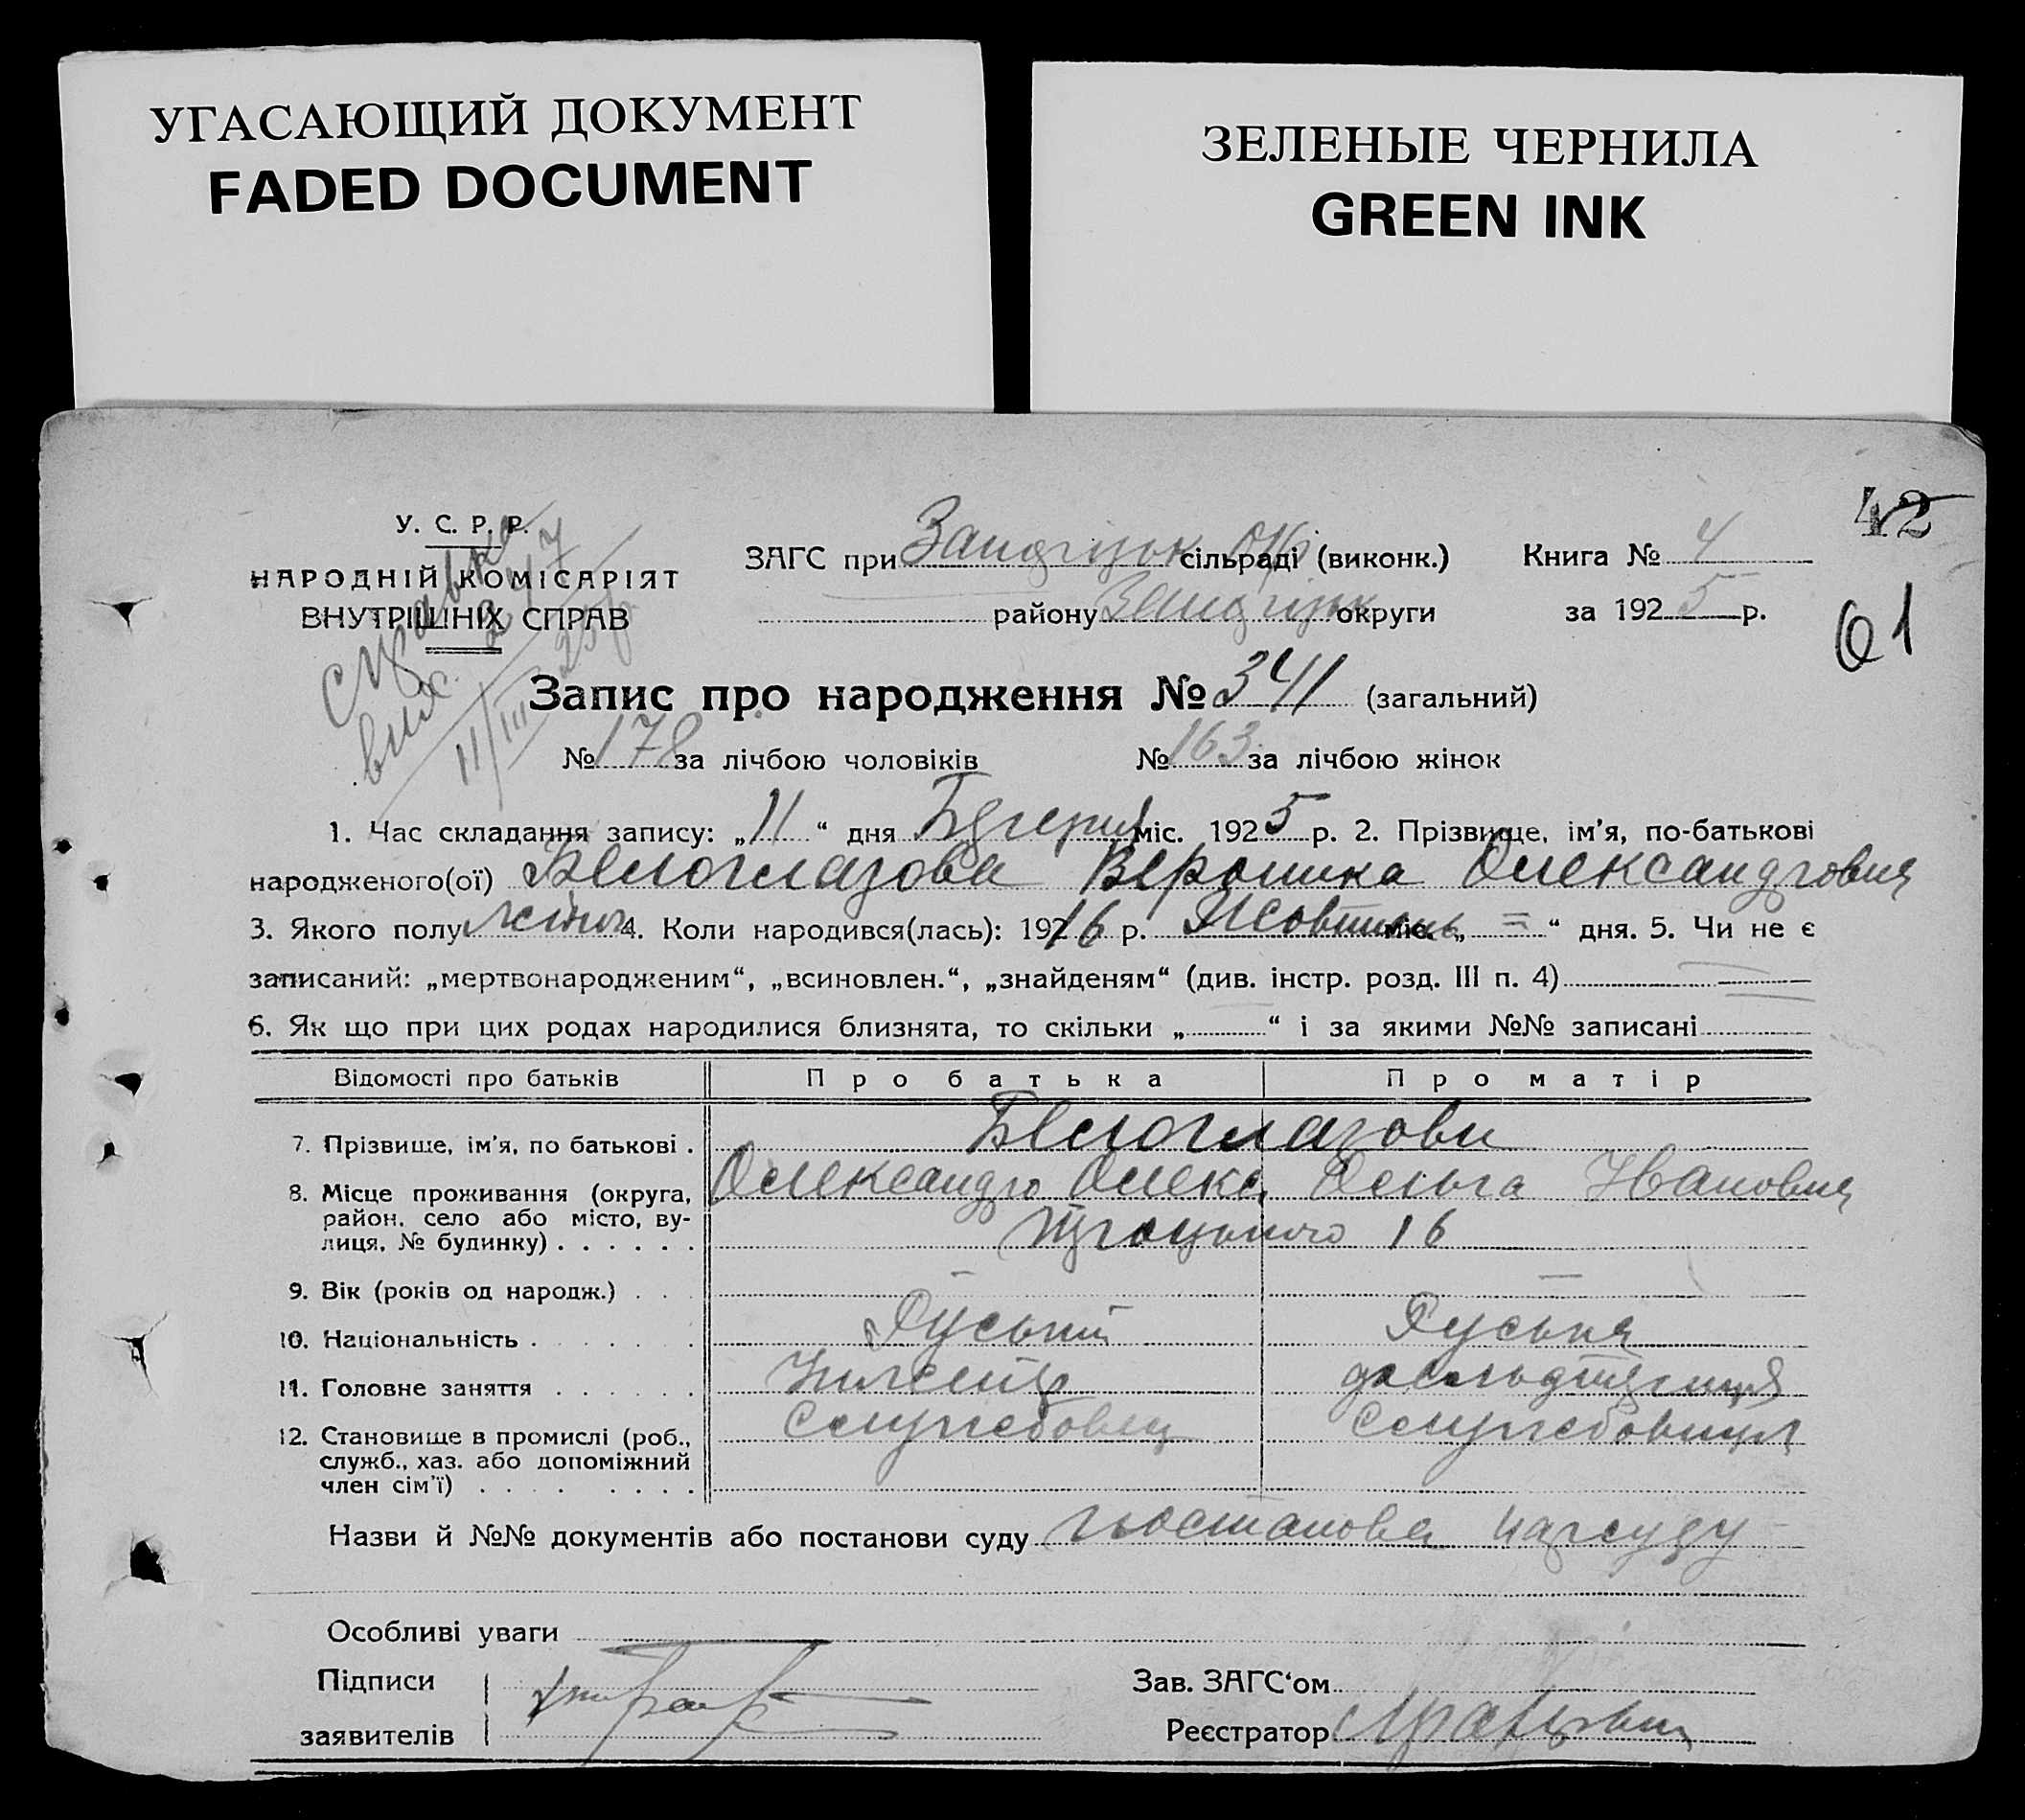 УГАСАЮЩИЙ ДОКУМЕНТ
FADED DOCUMENT
ЗЕЛЕНЫЕ ЧЕРНИЛА
GREEN INK
42
61
У. С. Р. Р.
НАРОДНІЙ КОМІСАРІЯТ
ВНУТРІШНІХ СПРАВ
Справка
вид. 247
11/III 25р
ЗАГС при сільраді (виконк.) Книга № 4
району округи за 1925 р.
Запис про народження № 341 (загальний)
№ 178 за лічбою чоловіків № 163 за лічбою жінок
1. Час складання запису: „11“ дня Березня міс. 1925 р. 2. Прізвище, ім'я, по-батькові
народженого(ої) Белоглазова Вероника Олександровна
3. Якого полу жіноч 4. Коли народився(лась): 1916 р. Жовтень міс. „=“ дня. 5. Чи не є
записаний: „мертвонародженим“, „всиновлен.“, „знайденям“ (див. інстр. розд. III п. 4)
6. Як що при цих родах народилися близнята, то скільки „ “ і за якими №№ записані
Відомості про батьків Про батька Про матір
7. Прізвище, ім'я, по батькові . Белоглазови
8. Місце проживання (округа, Олександр Олекс. Ольга Ивановна
район, село або місто, ву-
лиця, № будинку) . . . . . . Троцького 16
9. Вік (років од народж.) . . . — —
10. Національність . . . . . . Руський Руська
11. Головне заняття . . . . . . Инженер
12. Становище в промислі (роб., Службовец Службовиця
служб., хаз. або допоміжний
член сім'ї) . . . . . . . .
Назви й №№ документів або постанови суду постанова нарсуду
Особливі уваги
Підписи Зав. ЗАГС'ом
заявителів Реєстратор